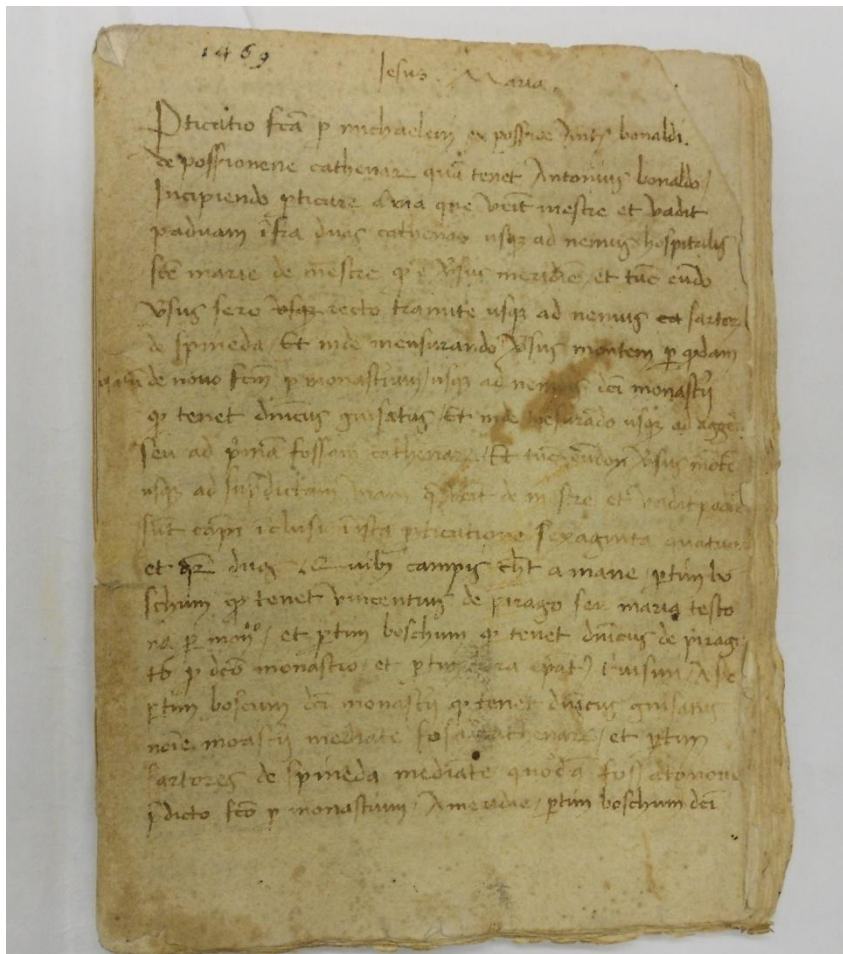 1469
Jesus. Maria.
Pticatio fcā p michaelem ex possione Antonij bonaldi.
de possionene cathenar quā tenet Antonius bonaldo /
Incipiendo pticare a via que venit mestre et vadit
paduam ifra duas cathenas usq; ad nemus hospitalis
scē marie de mestre q' ē v'sus meridiē et tūc eūdo
v'sus sero usq; recto tramite usq; ad nemus sartor
de spineda / Et inde mensurando v'sus montem p qdam
de novo fcm p monastrium / usq; ad nemus dci monastij
q' tenet dnicus guisatus / Et inde mesurādo usq; ad agge
seu ad p'mā fossam cathenar / Et tūc v'sus mōte
usq; ad dictam viam q' venit de mestre et vadit padu
sūt cāpi iclusi i ista pticatione sexaginta quatuor
et qr duas quibus campis cht a mane / ptim bo
schum q' tenet vincentius de pirago seu maria testo
ra p mon'o / et ptim boschum q' tenet dnicus de pirago
p dco monastrio / et ptim epat' trivisin / A se
ptim boscum dci monastij q' tenet dnicus guisatus
noie moastij mediāte fossa cathenar / et ptim
sartores de spineda mediāte quodā fossato novo
p'dicto fco p monastrium / A meridie / ptim boschum dci